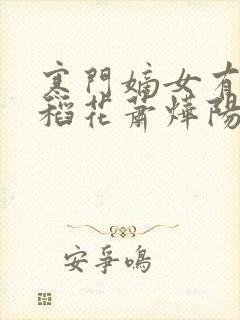 寒門嫡女有
稻花蕭燁陽
安爭鳴